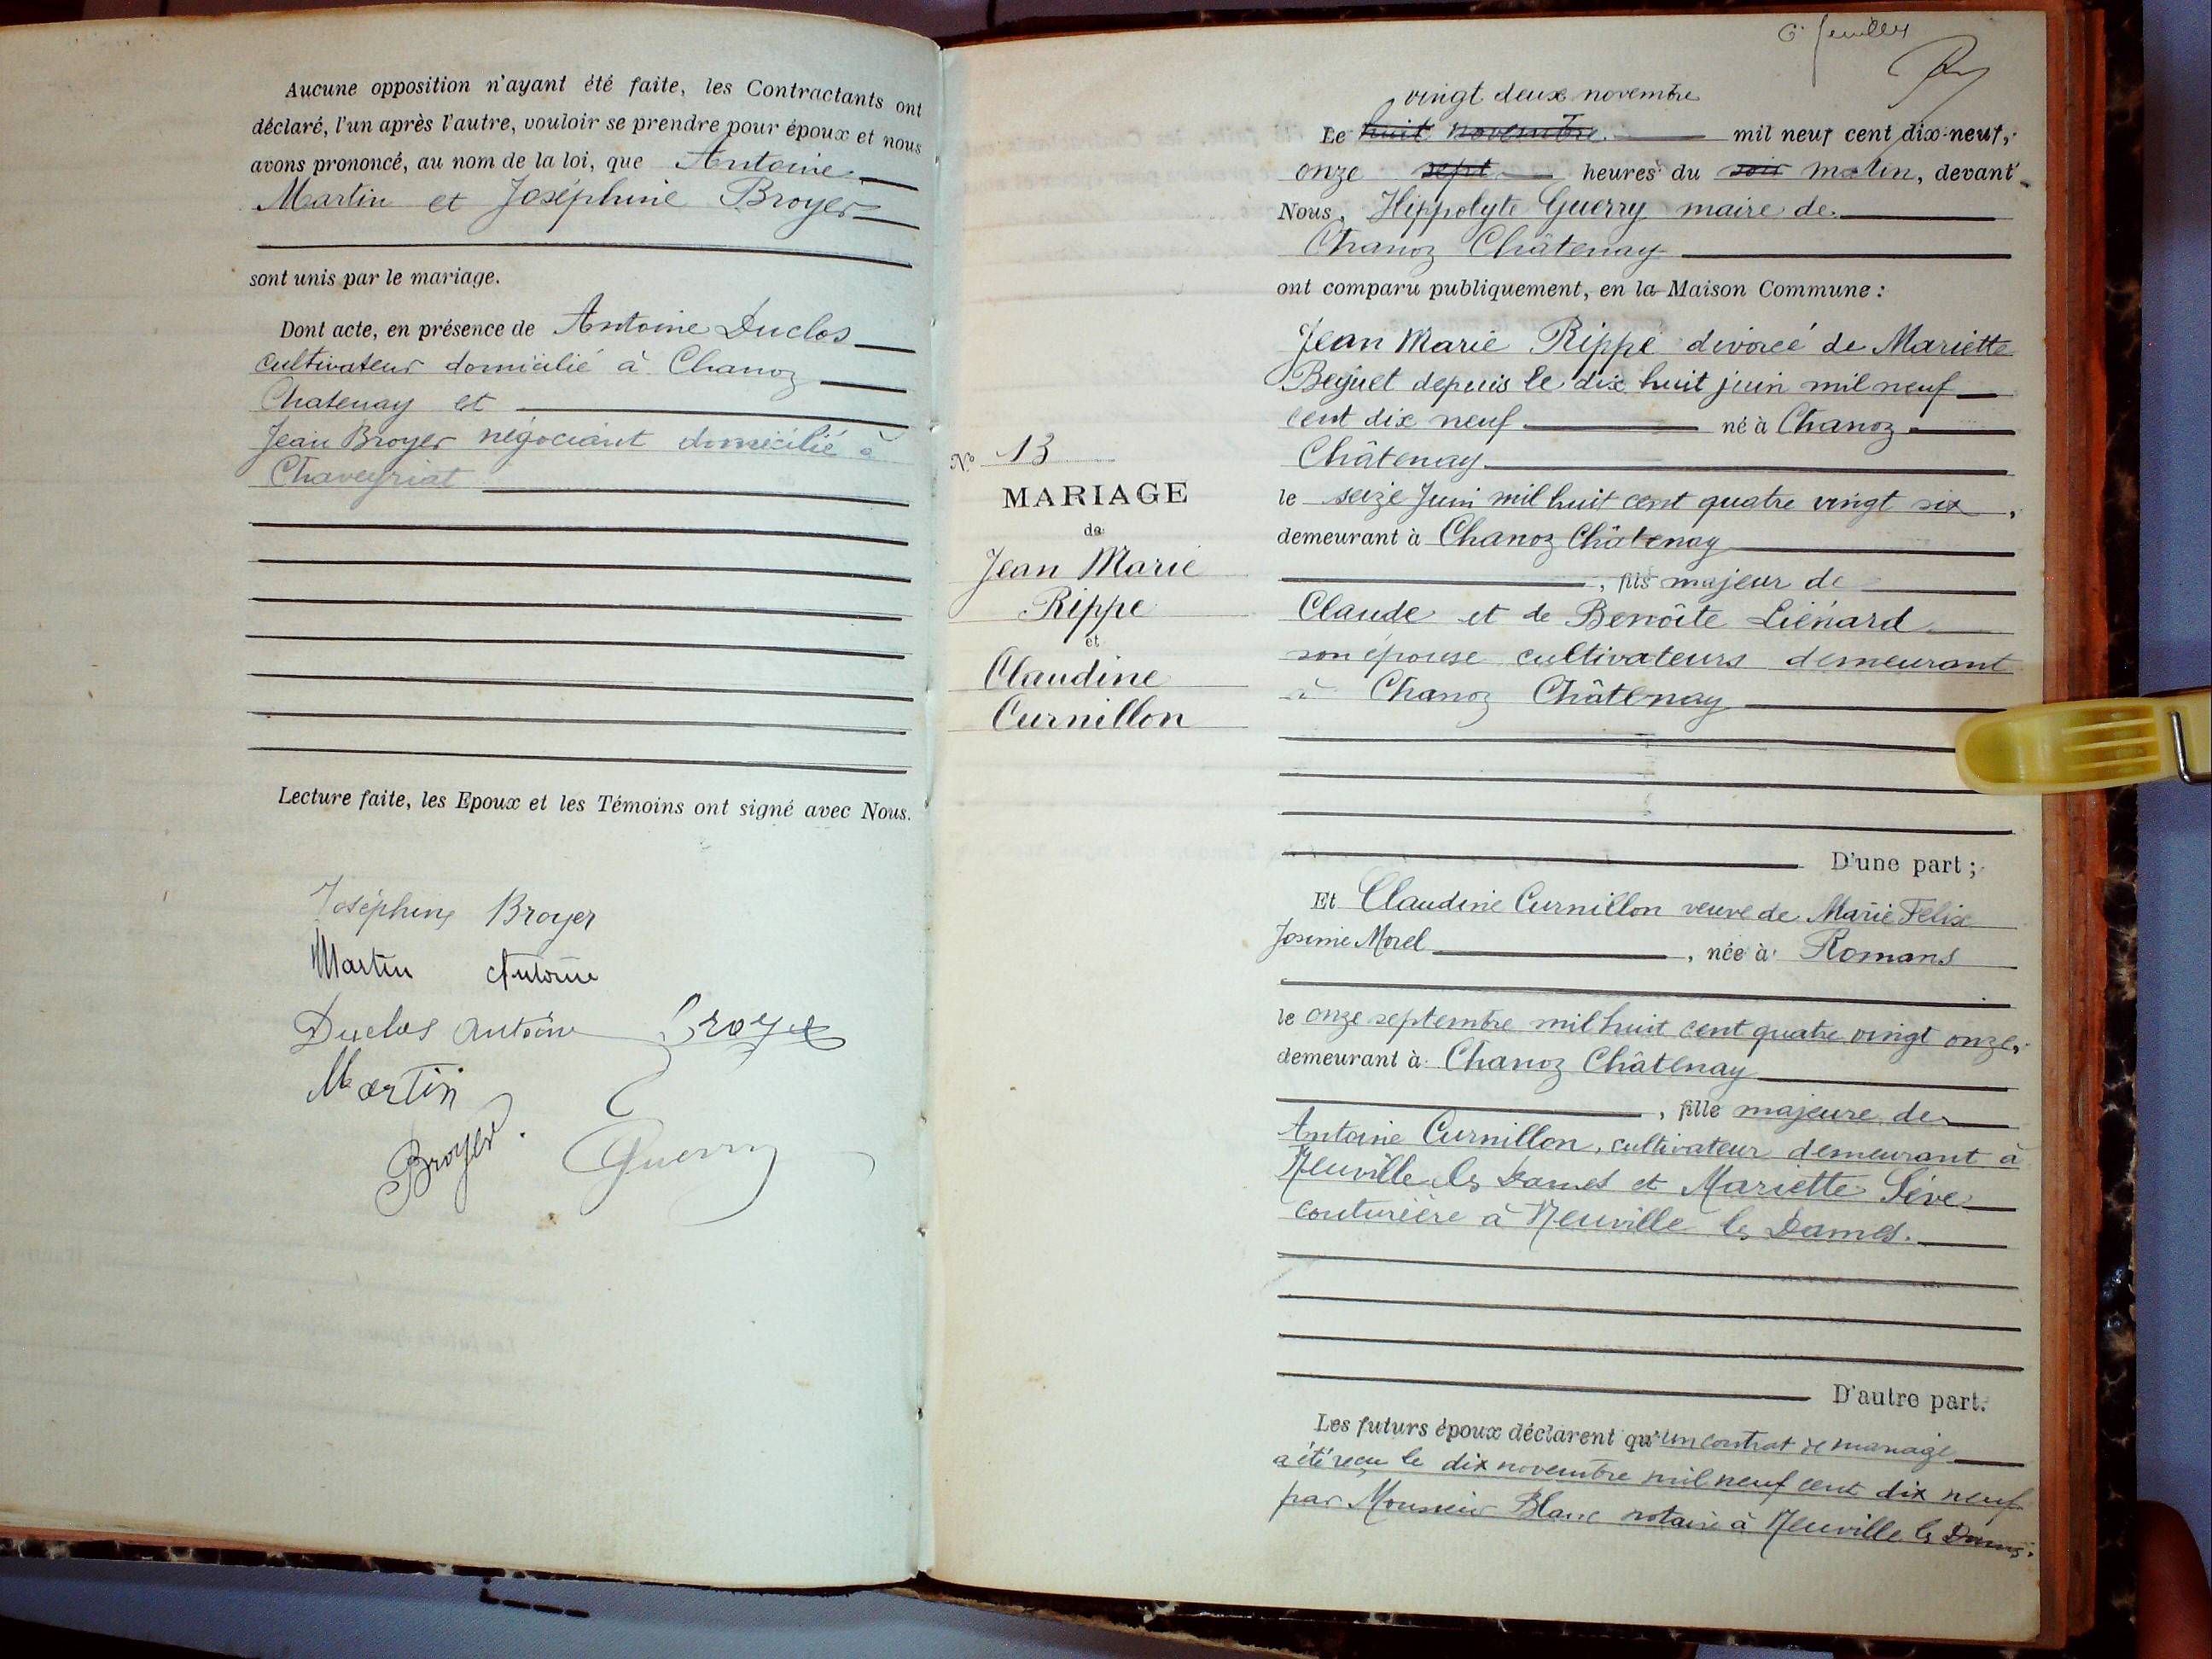 Aucune opposition n'ayant été faite, les Contractants ont
déclaré, l'un après l'autre, vouloir se prendre pour époux et nous
avons prononcé, au nom de la loi, que Antoine
Martin et Joséphine Broyer
sont unis par le mariage.
Dont acte, en présence de Antoine Duclos
cultivateur domicilié à Chanoz
Chatenay et
Jean Broyer négociant domicilié à
Chaveyriat
Lecture faite, les Epoux et les Témoins ont signé avec Nous.
Joséphine Broyer
Martin Antoine
Duclos Antoine Broyer
Martin
Broyer.
Guerry
6e feuillet
vingt deux novembre
Le huit novembre mil neuf cent dix-neuf,
onze sept heures du soir matin, devant
Nous, Hippolyte Guerry maire de
Chanoz Châtenay
ont comparu publiquement, en la Maison Commune :
Jean Marie Rippe divorcé de Mariette
Beguet depuis le dix huit juin mil neuf
cent dix neuf né à Chanoz
Châtenay
le seize Juin mil huit cent quatre vingt six,
demeurant à Chanoz Châtenay
, fils majeur de
Claude et de Benoîte Liénard
son épouse cultivateurs demeurant
à Chanoz Châtenay
D'une part ;
N° 13
MARIAGE
de
Jean Marie
Rippe
et
Claudine
Curnillon
Et Claudine Curnillon veuve de Marie Félix
Morel, née à Romans
le onze septembre mil huit cent quatre vingt onze,
demeurant à Chanoz Châtenay
, fille majeure de
Antoine Curnillon, cultivateur demeurant à
Neuville les Dames et Mariette Sève
couturière à Neuville les Dames.
D'autre part.
Les futurs époux déclarent qu'un contrat de mariage
a été reçu le dix novembre mil neuf cent dix neuf
par Monsieur Blanc notaire à Neuville les Dames.